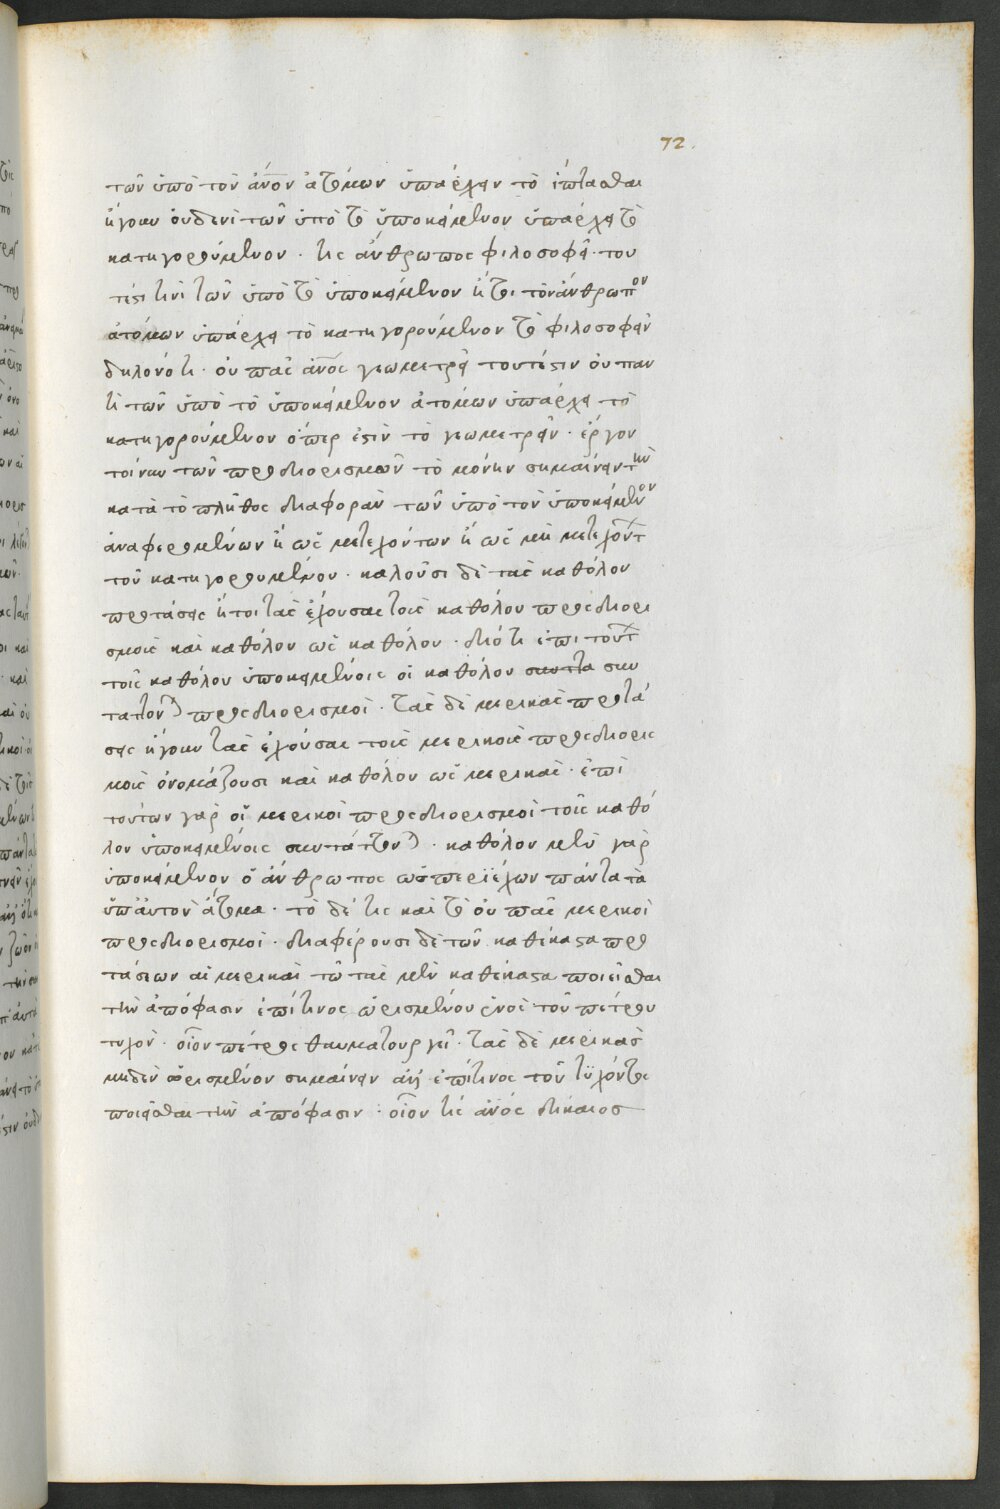 72.
τῶν ὑπὸ τὸν ἄνον ἀτόμων ὑπάρχειν τὸ ἵπτασθαι
ἤγουν οὐδενὶ τῶν ὑπὸ τὸ ὑποκείμενον ὑπάρχει τὸ
κατηγορούμενον · τὶς ἄνθρωπος φιλοσοφεῖ · του
τέστι τινὶ τῶν ὑπὸ τὸ ὑποκείμενον ἤτοι τὸν ἄνθρωπον
ἀτόμων ὑπάρχει τὸ κατηγορούμενον τὸ φιλοσοφεῖν
δηλονότι · οὐ πᾶς ἄνος γεωμετρεῖ τουτέστιν οὐ παν
τὶ τῶν ὑπὸ τὸ ὑποκείμενον ἀτόμων ὑπάρχει τὸ
κατηγορούμενον ὅπερ ἐστὶν τὸ γεωμετρεῖν · ἔργον
τοίνυν τῶν προσδιορισμῶν τὸ μόνην σημαίνειν τὴν
κατὰ τὸ πλῆθος διαφορὰν τῶν ὑπὸ τὸν ὑποκείμενον
ἀναφερομένων ἢ ὡς μετεχόντων ἢ ὡς μὴ μετεχόντ
τοῦ κατηγορουμένου · καλοῦσι δὲ τὰς καθόλου
προτάσεις ἤτοι τὰς ἐχούσας τοὺς καθόλου προσδιορι
σμοὺς καὶ καθόλου ὡς καθόλου · διότι ἐπὶ τούτ
τοῖς καθόλου ὑποκειμένοις οἱ καθόλου συντα συν
τάττονται προσδιορισμοί · τὰς δὲ μερικὰς προτά
σεις ἤγουν τὰς ἐχούσας τοὺς μερικοὺς προσδιορις
μοὺς ὀνομάζουσι καὶ καθόλου ὡς μερικάς · ἐπὶ
τούτων γὰρ οἱ μερικοὶ προσδιορισμοὶ τοῖς καθό
λου ὑποκειμένοις συντάττονται · καθόλου μὲν γὰρ
ὑποκείμενον ὁ ἄνθρωπος ὡς περιέχων πάντα τὰ
ὑπ αὐτὸν ἄτομα · τὸ δέ τις καὶ τὸ οὐ πᾶς μερικοὶ
προσδιορισμοί · διαφέρουσι δὲ τῶν καθέκαστα προ
τάσεων αἱ μερικαὶ τῶ τὰς μὲν καθέκαστα ποιεῖσθαι
τὴν ἀπόφασιν ἐπί τινος ὡρισμένου ἑνὸς τοῦ πέτρου
τυχόν · οἷον πέτρος θαυματουργεῖ · τὰς δὲ μερικὰς
μηδὲν ὡρισμένον σημαίνειν ἀλλ ἐπί τινος τοῦ τυχόντος
ποιεῖσθαι τὴν ἀπόφασιν · οἷον τὶς ἄνος δίκαιος